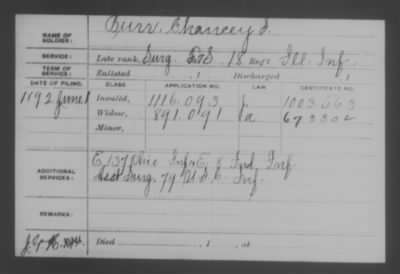 NAME OF SOLDIER: Burr, Chancey S.
SERVICE: Late rank, Surg 18 Reg't Ill. Inf.
TERM OF SERVICE: Enlisted , 1 Discharged , 1
DATE OF FILING. CLASS APPLICATION NO. LAW CERTIFICATE NO.
1892 June Invalid, 1116.093 1003.563
Widow, 891.091 a 673302
Minor,
ADDITIONAL SERVICES: E. 137 Ohio Inf. E. 8 Ind. Inf.
Asst Surg. 79 U.S.C. Inf.
REMARKS:
Died , 1 , at